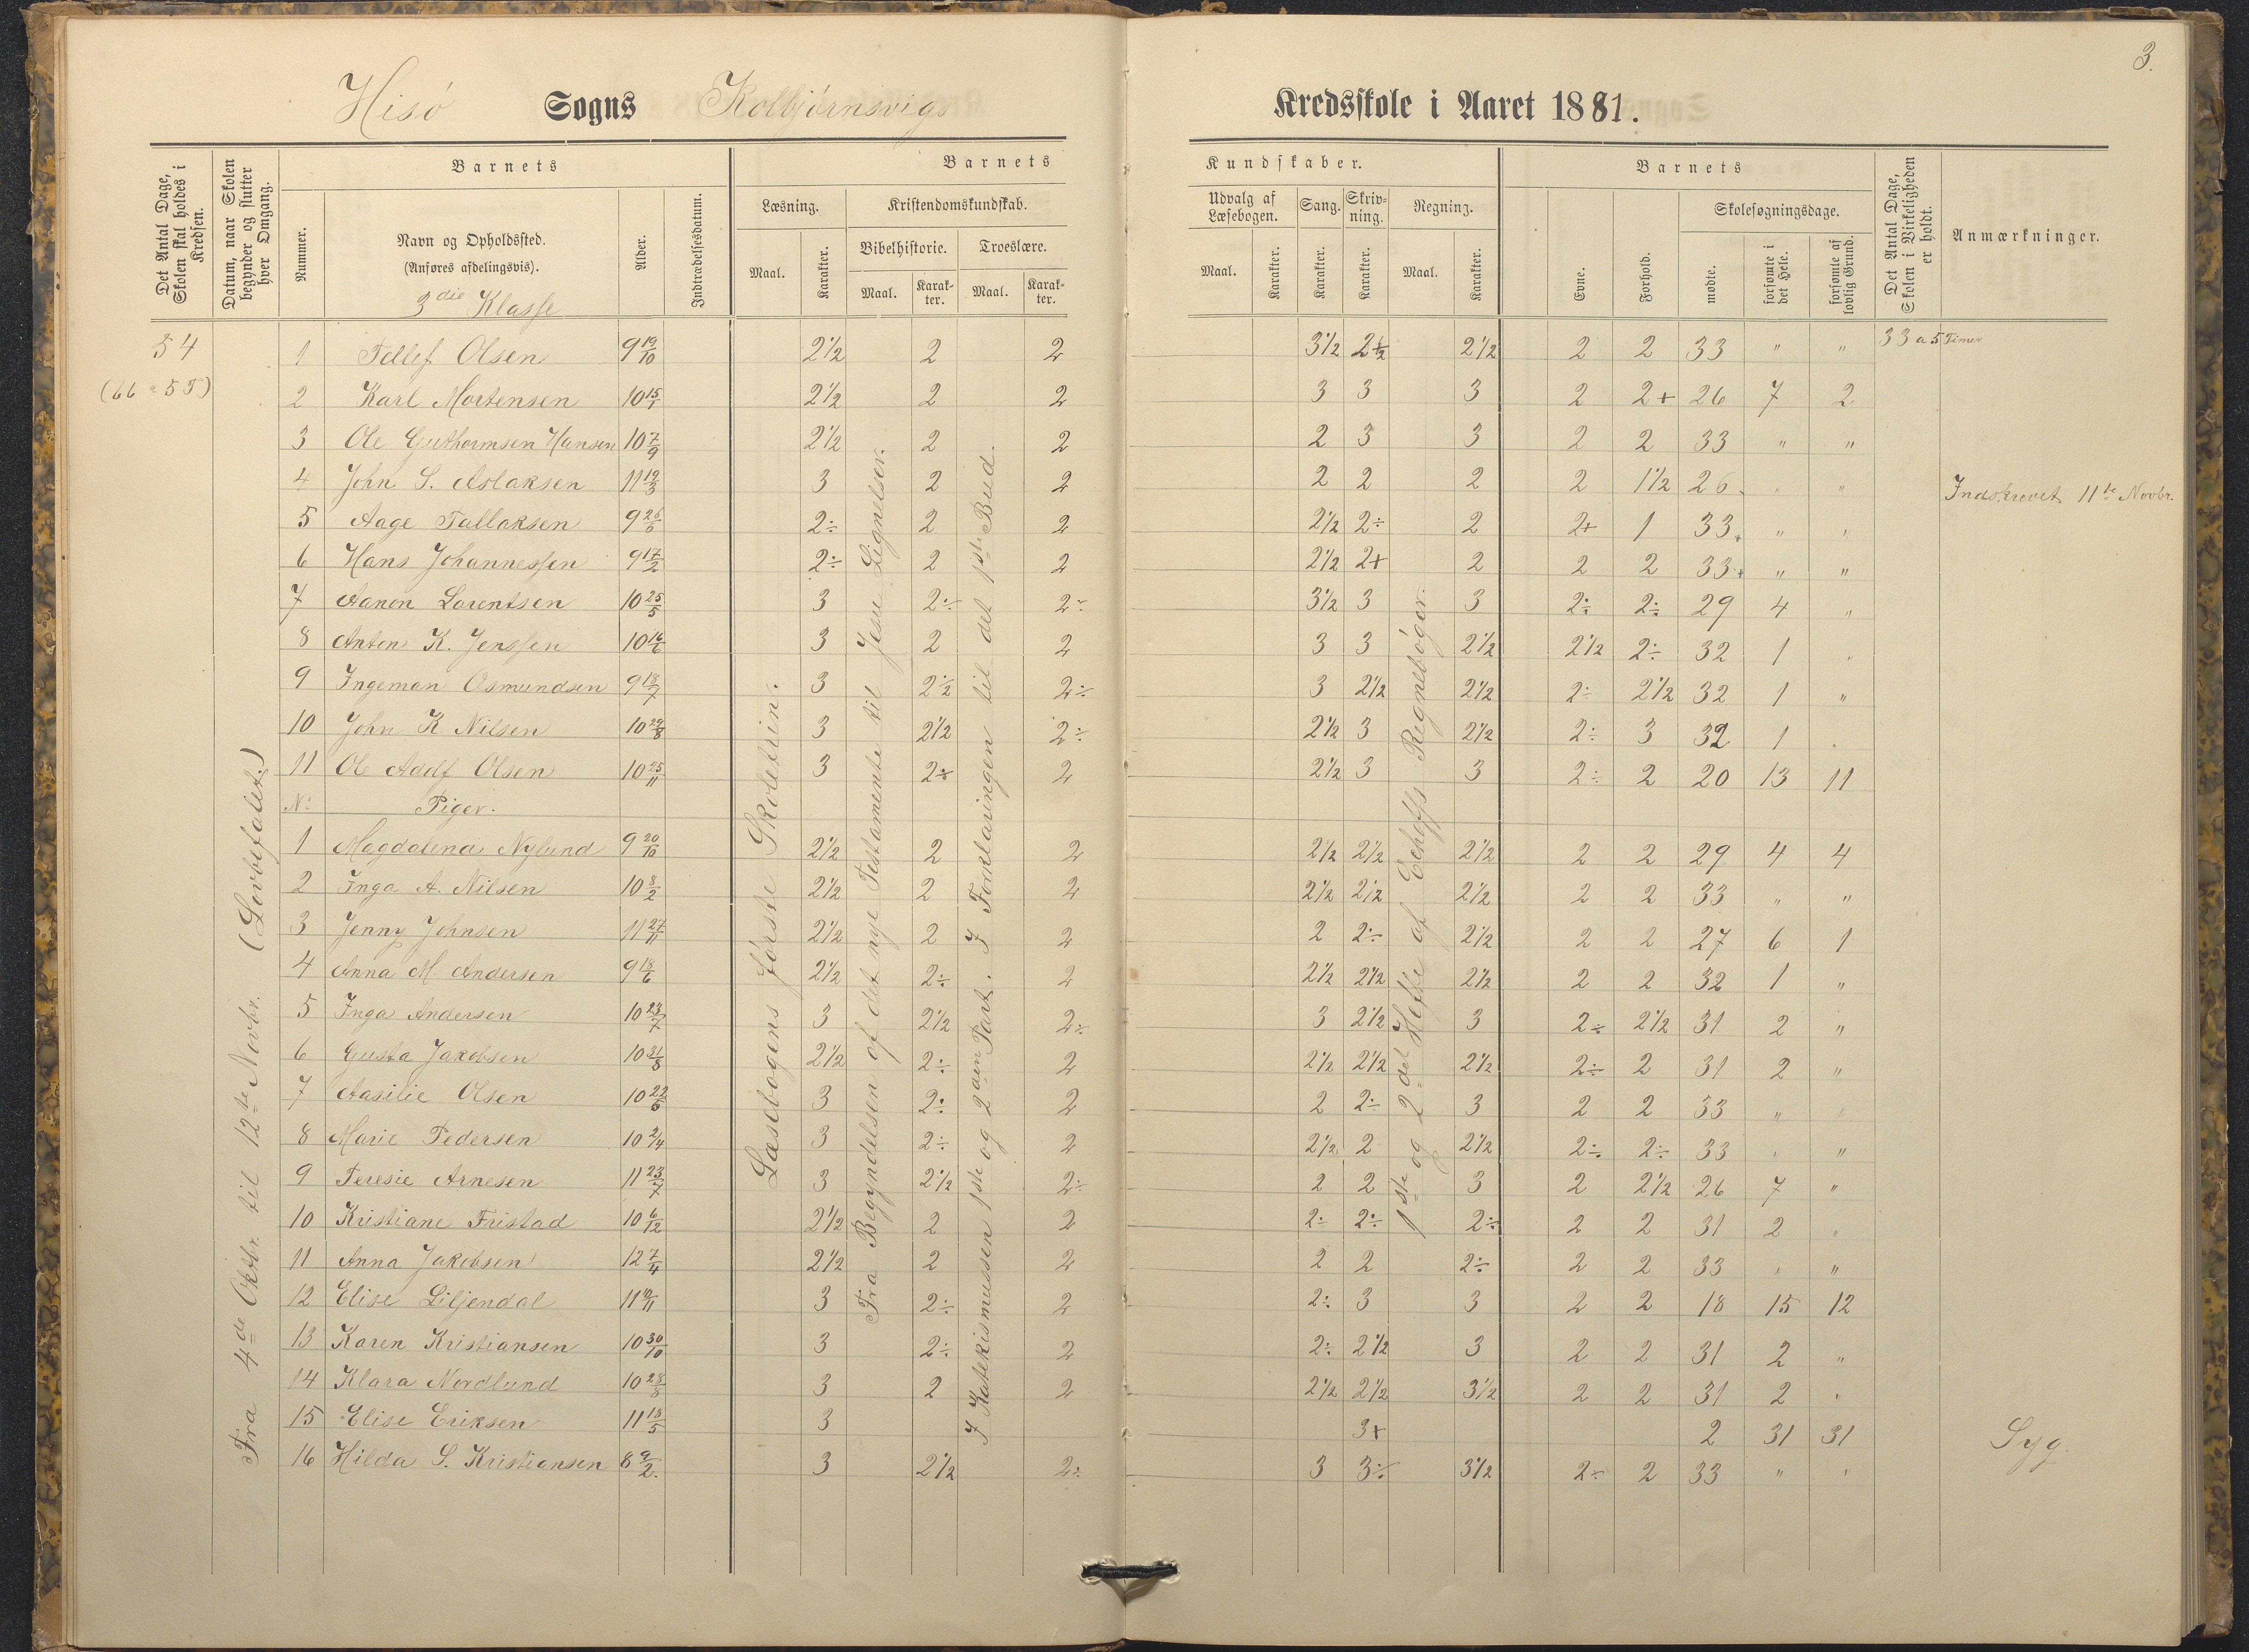 3.
Hisø Sogns Kolbjørnsvigs Kredsskole i Aaret 1881.
Det Antal Dage, Skolen skal holdes i Kredsen.
Datum, naar Skolen begynder og slutter hver Omgang.
Barnets
Nummer.
Navn og Opholdssted.
(Anføres afdelingsvis).
3die Klasse
Alder.
Indtrædelsesdatum.
Barnets Kundskaber.
Læsning.
Maal. Karakter.
Kristendomskundskab.
Bibelhistorie. Troeslære.
Maal. Karakter. Maal. Karakter.
Udvalg af Læsebogen.
Maal. Karakter.
Sang. Karakter.
Skrivning. Karakter.
Regning.
Maal. Karakter.
Barnets
Evne. Forhold.
Skolesøgningsdage.
mødte. forsømte i det Hele. forsømte af lovlig Grund.
Det Antal Dage, Skolen i Virkeligheden er holdt.
Anmærkninger.
54
(66 a 5 T)
Fra 4de Oktbr. til 12te Novbr. (Lovbefalet.)
Læsebogens første Skoletrin.
Fra Begyndelsen af det nye Testamente til Jesu Lignelser.
I Katekismussen 1ste og 2den Part. I Forklaringen til det 1ste Bud.
1ste og 2det Hefte af Eckhoffs Regnebøger.
1 Tellef Olsen 9 19/10 2 1/2 2 2 3 1/2 2 1/2 2 1/2 2 2 33 " " 33 a 5 Timer
2 Karl Mortensen 10 2 1/2 2 2 3 3 3 2 2+ 26 7 2
3 Ole Guthormsen Hansen 10 7/9 2 1/2 2 2 2 3 3 2 2 33 " "
4 John S. Aslaksen 11 19/3 3 2 2 2 2 2 2 1 1/2 26 " " Indskrevet 11te Novbr.
5 Aage Tallaksen 9 2÷ 2 2 2 1/2 2÷ 2 2+ 1 33 " "
6 Hans Johannessen 9 17/2 2÷ 2 2 2 1/2 2+ 2 2 2 33 " "
7 Aanon Larentsen 10 25/5 3 2÷ 2÷ 3 1/2 3 3 2÷ 2÷ 29 4 "
8 Anton K. Jenssen 10 16/6 3 2 2 3 3 2 1/2 2 1/2 2÷ 32 1 "
9 Ingeman Osmundsen 9 18/7 3 2 1/2 2÷ 3 2 1/2 2 1/2 2÷ 2 1/2 32 1 "
10 John K Nilsen 10 29/8 3 2 1/2 2÷ 2 1/2 3 2 1/2 2÷ 3 32 1 "
11 Ole Adolf Olsen 10 25/11 3 2÷ 2 2 1/2 3 3 2÷ 2 20 13 11
No Piger.
1 Magdalena Nylund 9 20/10 2 1/2 2 2 2 1/2 2 1/2 2 1/2 2 2 29 4 4
2 Inga A. Nilsen 10 8/2 2 1/2 2 2 2 1/2 2 1/2 2 1/2 2 2 33 " "
3 Jenny Johnsen 11 27/11 2 1/2 2 2 2 2÷ 2 1/2 2 2 27 6 1
4 Anna M. Andersen 9 18/6 2 1/2 2÷ 2 2 1/2 2 1/2 2 1/2 2 2 32 1 "
5 Inga Andersen 10 23/7 3 2 1/2 2÷ 3 2 1/2 3 2÷ 2 1/2 31 2 "
6 Gusta Jakobsen 10 31/8 2 1/2 2÷ 2 2 1/2 2 1/2 2 1/2 2÷ 2 31 2 "
7 Aasilie Olsen 10 3 2÷ 2 2 2÷ 3 2 2 33 " "
8 Marie Pedersen 10 2/4 3 2÷ 2 2 1/2 2 2 1/2 2÷ 2÷ 33 " "
9 Teresie Arnesen 11 23/7 3 2 1/2 2÷ 2 2 3 2 2 1/2 26 7 "
10 Kristiane Fristad 10 6/12 2 1/2 2 2 2÷ 2÷ 2÷ 2 2 31 2 "
11 Anna Jakobsen 12 7/4 2 1/2 2 2 2 2 2÷ 2 2 33 " "
12 Elise Liljendal 11 3 2÷ 2 2÷ 3 3 2 2 18 15 12
13 Karen Kristiansen 10 30/10 3 2÷ 2 2÷ 2 1/2 3 2 2 31 2 "
14 Klara Nordlund 10 28/8 3 2 2 2 1/2 2 1/2 3 1/2 2 2 31 2 "
15 Elise Eriksen 11 18/5 3 3+ 2 31 31 Syg.
16 Hilda S. Kristiansen 8 9/2. 3 2 1/2 2÷ 3 3÷ 3 1/2 2÷ 2 33 " "